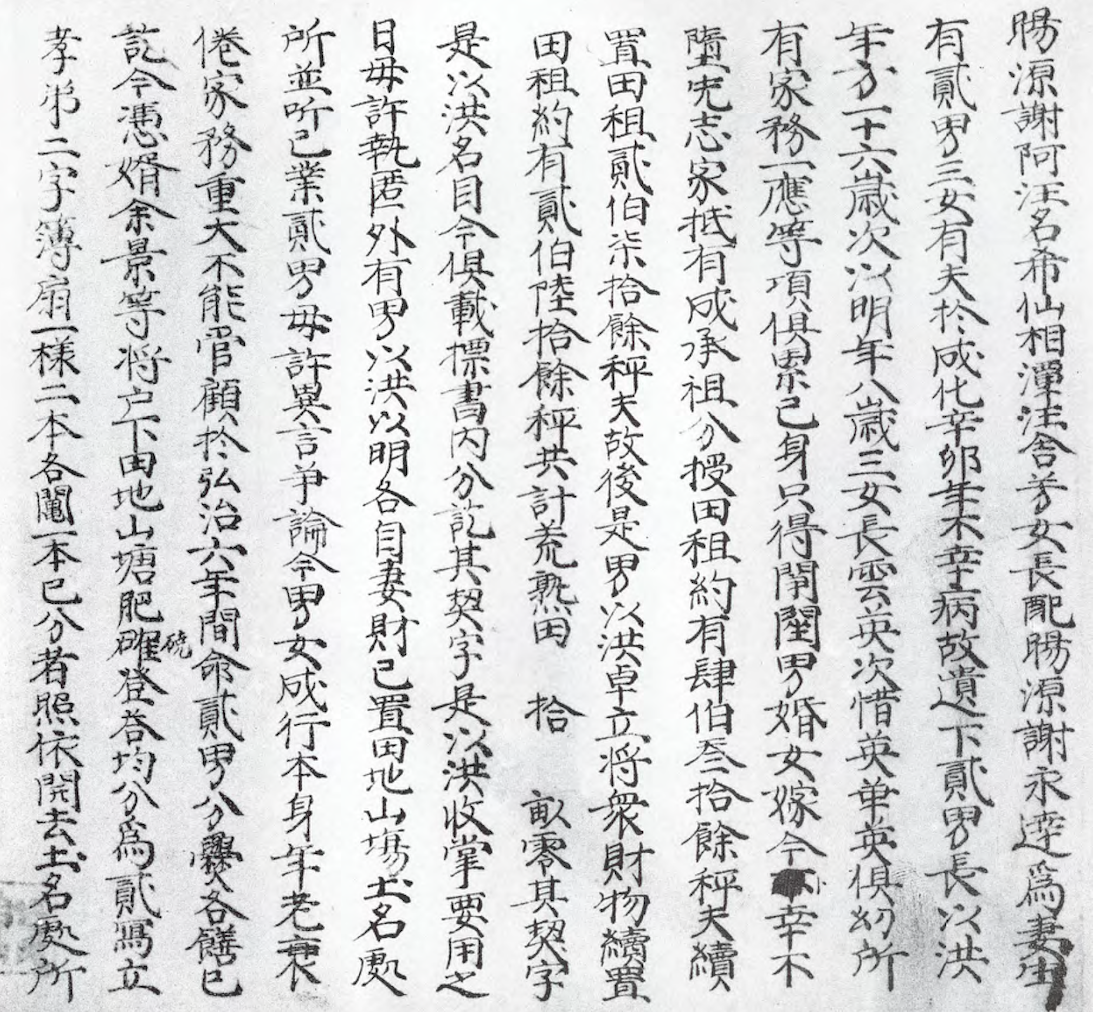 賜源謝阿汪名希仙相潭汪舍芳女長配賜源謝永達為妻生
有貳男三女有夫於成化辛卯年不幸病故遺下貳男長以洪
年方一十六歲次以明年八歲三女長雲英次惜英弟英俱幼所
有家務一應等項俱累己身只得閙闛男婚女嫁今幸不
墮先志家抵有成承祖分授田租約有肆伯叁拾餘秤夫續
置田租貳伯柒拾餘秤夫故後是男以洪卓立将衆財物續置
田租約有貳伯陸拾餘秤共計荒熟田 拾 畝零其契字
是以洪名目今俱載標書内分訖其契字是以洪收掌要用之
日毋許執匿外有男以洪以明各自妻財己置田地山塲土名處
所並听己業貳男毋許異言争論今男女成行本身年老衰
倦家務重大不能管顧於弘治六年間命貳男分爨各饍已
訖今憑婿余景等将户下田地山塘肥磽登荅均分為貳寫立
孝弟二字簿扇一樣二本各鬮一本已分者照依開去土名處所